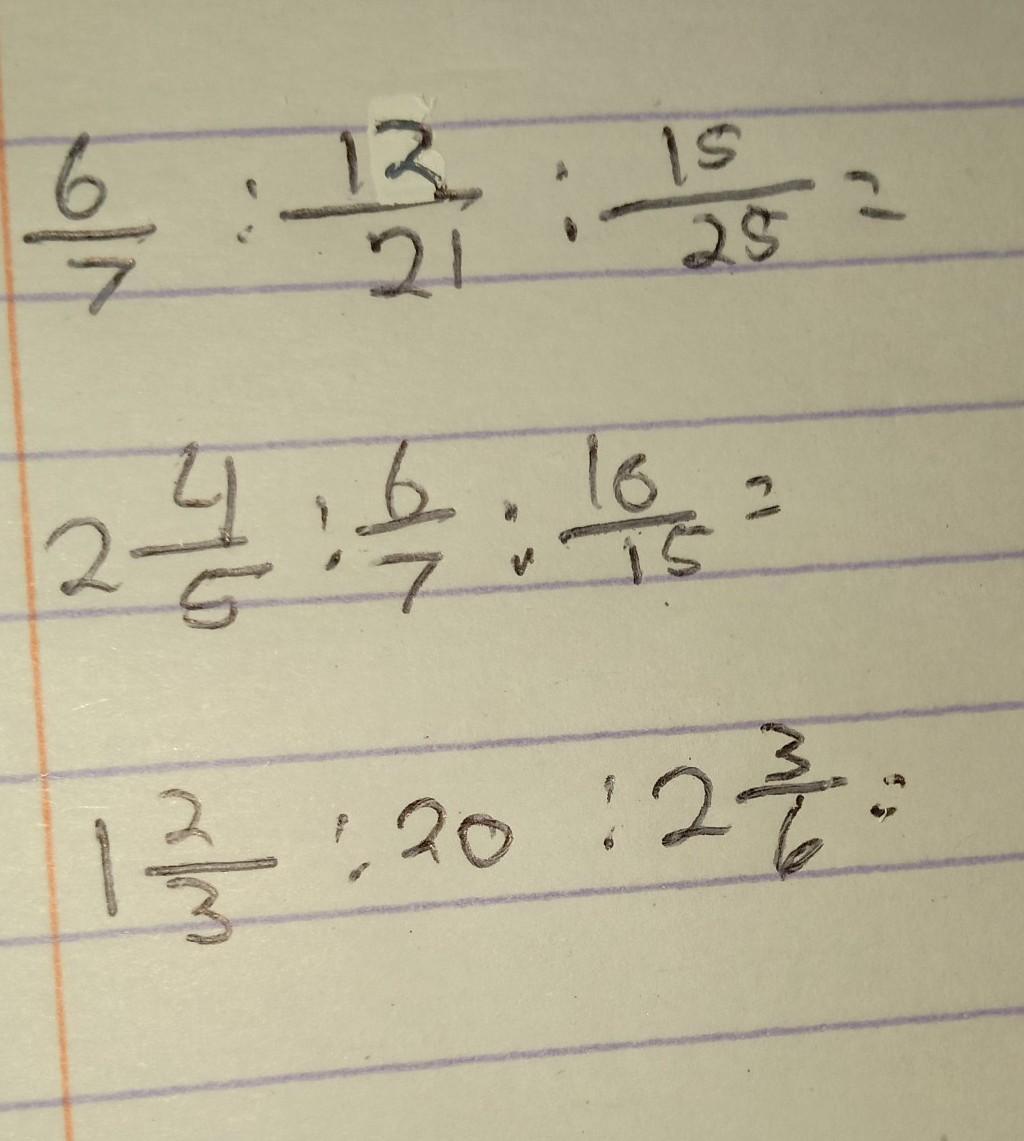 6/7 : 12/21 : 15/25 =
2 4/5 : 6/7 : 16/15 =
1 2/3 : 20 : 2 3/6 =